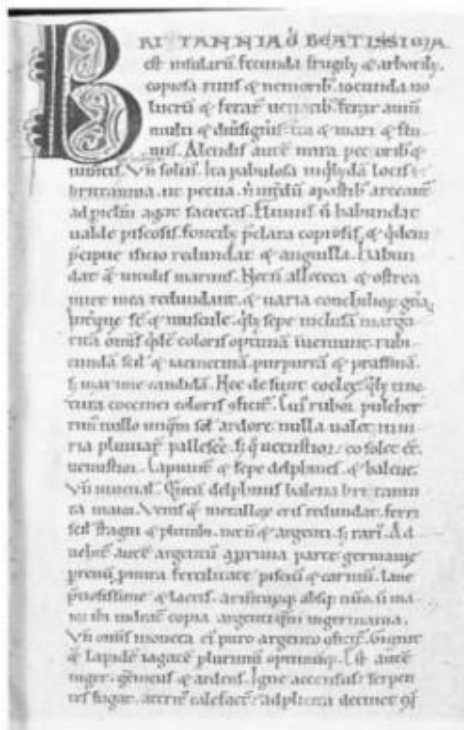 BRITANNIA Ū BEATISSIMA
est insularū. fecunda frugib; & arborib;
copiosa riuis & nemorib; iocunda uo
lucrū & ferar̄ uenatib; ferax auiū
multi & diuersi gn̄is. tā & mari &
Alendis autē mira pecorib; &
iumtis. Vn̄ solin'. Ita pabulosa locis ē
britannia. ut pecua. n̄ apastib; arceant̄
ad piclm̄ agat sacietas. Fluuiis ū habundat
ualde piscosis. fontib; p̄clara copiosis. & q̄dem
p̄cipue isicio redundat & anguilla. Habun
dat & uitulis marinis. Necn̄ alleccia & ostrea
mire mea redundant. & uaria conchilior̄ gn̄a.
Int̄ que st̄ & muscule. q̄b; sepe inclusā marga
ritā om̄is q̄dē coloris optimā inueniunt. rubi
cundā scil & iacinctinā. purpureā & prassinā.
s; maxime candidā. Nec desunt coclee. q̄b; tinc
tura coccinei coloris ꝯficit̄. Cui' rubor pulcher
rim' nullo unq̄m sol' ardore. nulla ualet iniu
ria pluuiar̄ pallescē. s; q̄ uetustior. eo solet ēē
uenustior. Capiunt̄ & sepe delphines. & balene.
Vn̄ iuuenal'. Quātū delphinis balena britanni
ca maior. Venis q̄ metallor̄ eris redundat. ferri
scil stagni & plumbi. necn̄ & argenti. s; rari'. Ad
uehit̄ autē argentū aprima parte germanie
p̄ renū. p̄ mira fertilitate pisciū & carniū. lane
p̄ciosissime & lactis. armtorq; absq; nūo. ū ma
ior ibi uideat̄ copia argenti q̄m ingermania.
Vn̄ om̄is moneta ei' puro argento ꝯficit̄. Gignit
& lapidē gagatē plurimū optimūq;. Est autē
niger. gēmeus & ardens. Igne accensus: serpen
tes fugat. attritu calefact': adplicita detinet